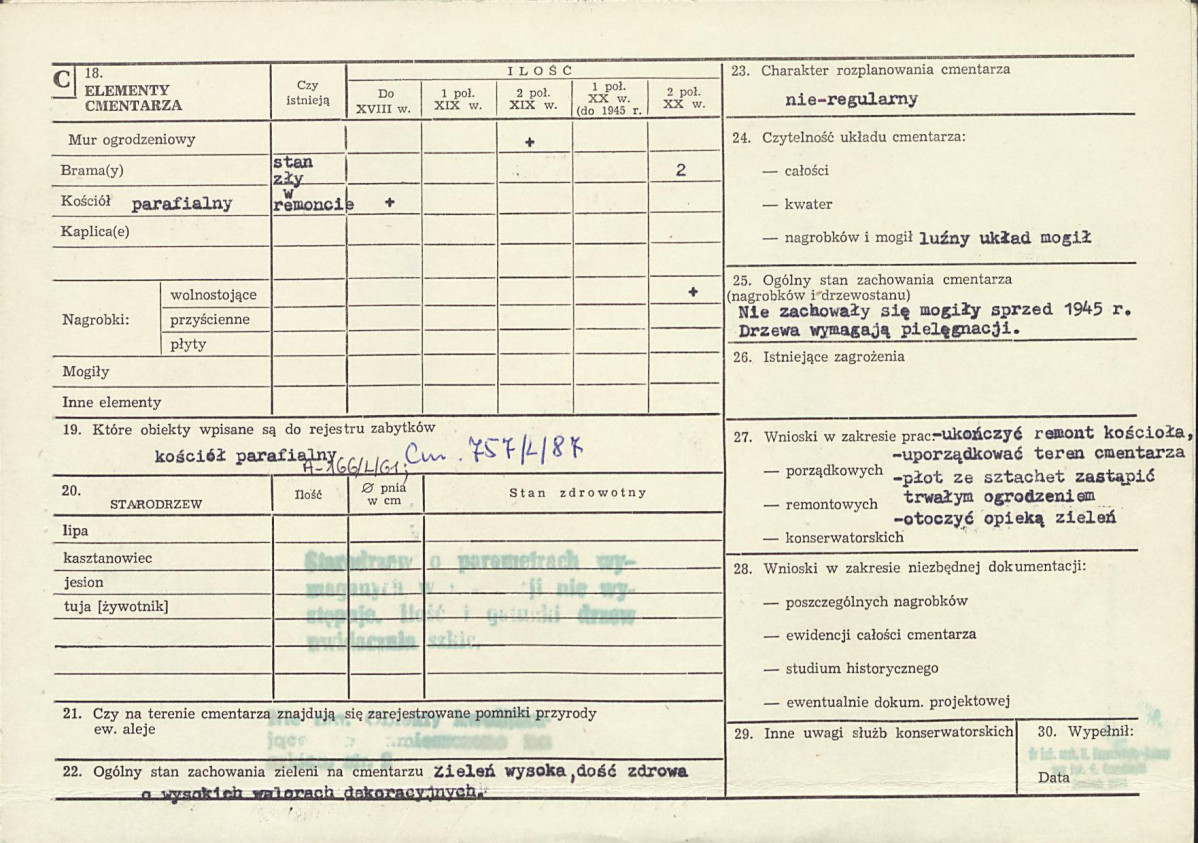 C
18.
ELEMENTY
CMENTARZA
Czy
istnieją
ILOŚĆ
Do
XVIII w.
1 poł.
XIX w.
2 poł.
XIX w.
1 poł.
XX w.
(do 1945 r.
2 poł.
XX w.
Mur ogrodzeniowy +
Brama(y) stan
zły 2
Kościół parafialny w
remoncie +
Kaplica(e)
Nagrobki:
wolnostojące +
przyścienne
płyty
Mogiły
Inne elementy
19. Które obiekty wpisane są do rejestru zabytków
kościół parafialny Cm. 757/L/87
A-166/L/61;
20.
STARODRZEW
Ilość
Ø pnia
w cm
Stan zdrowotny
lipa
kasztanowiec
jesion
tuja [żywotnik]
Starodrzew o parametrach wy-
maganych w ji nie wy-
stępuje. Ilość i gatunki drzew
uwidacznia szkic.
21. Czy na terenie cmentarza znajdują się zarejestrowane pomniki przyrody
ew. aleje
22. Ogólny stan zachowania zieleni na cmentarzu Zieleń wysoka,dość zdrowa
o wysokich walorach dekoracyjnych.
23. Charakter rozplanowania cmentarza
nie-regularny
24. Czytelność układu cmentarza:
— całości
— kwater
— nagrobków i mogił luźny układ mogił
25. Ogólny stan zachowania cmentarza
(nagrobków i drzewostanu)
Nie zachowały się mogiły sprzed 1945 r.
Drzewa wymagają pielęgnacji.
26. Istniejące zagrożenia
27. Wnioski w zakresie prac:-ukończyć remont kościoła,
-uporządkować teren cmentarza
— porządkowych -płot ze sztachet zastąpić
— remontowych trwałym ogrodzeniem
-otoczyć opieką zieleń
— konserwatorskich
28. Wnioski w zakresie niezbędnej dokumentacji:
— poszczególnych nagrobków
— ewidencji całości cmentarza
— studium historycznego
— ewentualnie dokum. projektowej
29. Inne uwagi służb konserwatorskich
30. Wypełnił:
Data